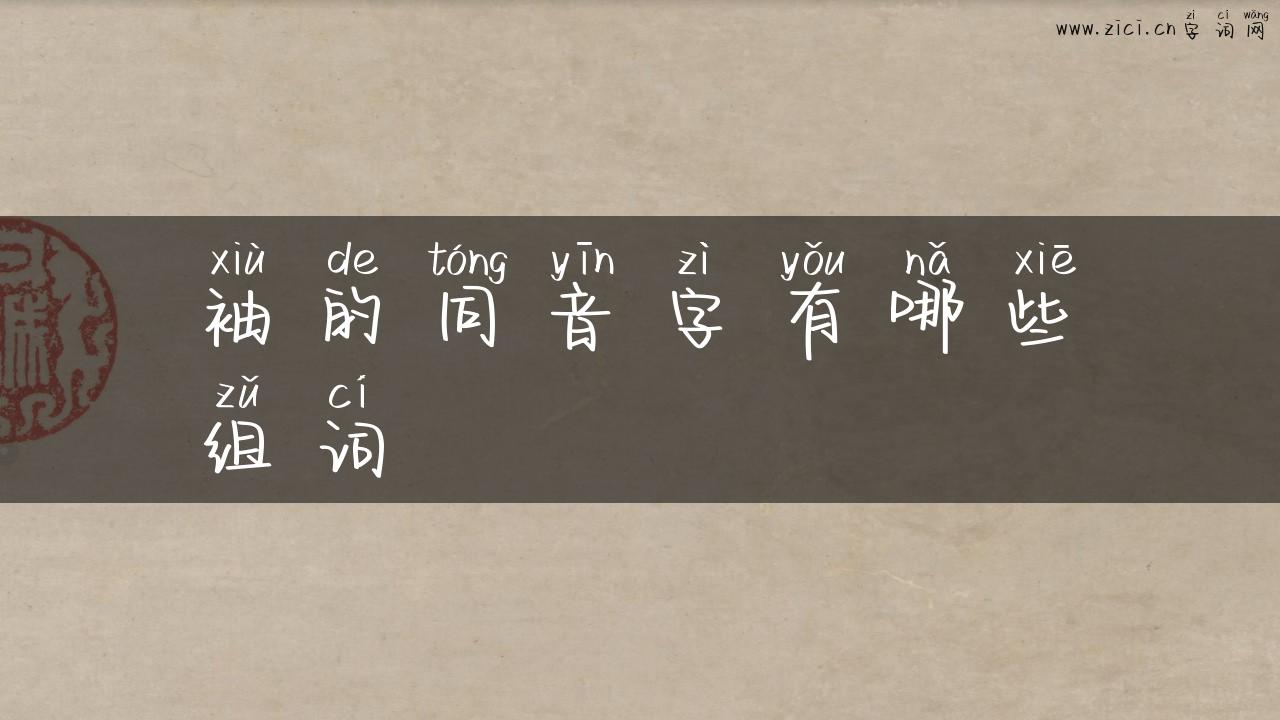 zì cí wǎng
www.zici.cn 字词网
xiù de tóng yīn zì yǒu nǎ xiē
袖的同音字有哪些
zǔ cí
组词